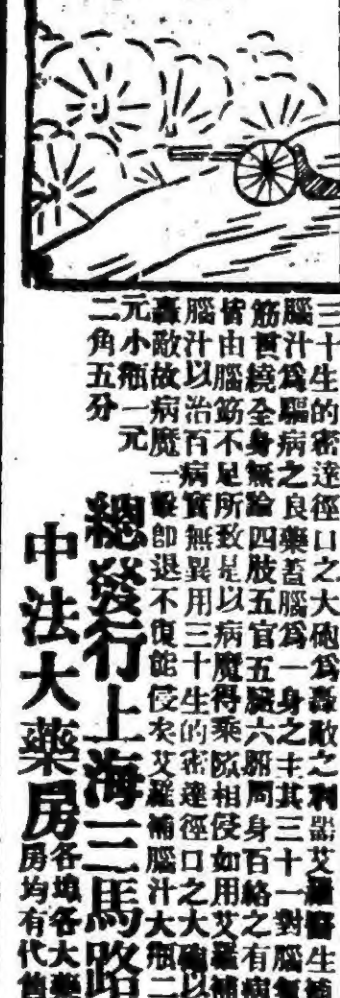 三十生的密達徑口之大砲爲轟敵之利器艾羅醫生補
腦汁爲驅病之良藥蓋腦爲一身之主其三十一對腦氣
筋貫繞全身無論四肢五官五臟六腑周身百絡之有病
皆由腦筋不足所致是以病魔得乘隙相侵如用艾羅補
腦汁以治百病實無異用三十生的密達徑口之大砲以
轟敵故病魔一擊卽退不復能侵矣艾羅補腦汁大瓶二
元小瓶一元
二角五分
總發行上海三馬路
中法大藥房
各埠各大藥
房均有代售